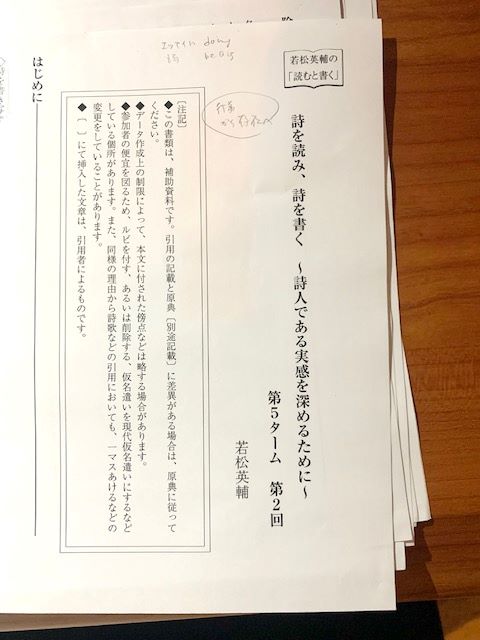 若松英輔の
「読むと書く」
詩を読み、詩を書く　～詩人である実感を深めるために～
第5ターム　第2回
若松英輔
〔注記〕
◆この書類は、補助資料です。引用の記載と原典〔別途記載〕に差異がある場合は、原典に従って
ください。
◆データ作成上の制限によって、本文に付された傍点などは略する場合があります。
◆参加者の便宜を図るため、ルビを付す、あるいは削除する、仮名遣いを現代仮名遣いにするなど
している個所があります。また、同様の理由から詩歌などの引用においても、一マスあけるなどの
変更をしていることがあります。
◆〔　〕にて挿入した文章は、引用者によるものです。
はじめに
doing
being